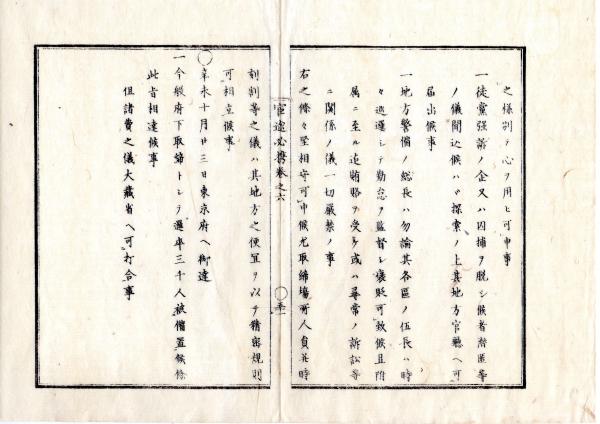 之様別テ心ヲ用ヒ可申事
一徒黨強盗ノ企又ハ囚捕ヲ脱シ候者潜匿等
ノ儀聞込候ハヽ探索ノ上其地方官廳ヘ可
届出候事
一地方警備ノ総長ハ勿論其各區ノ伍長ハ時
々巡邏シテ勤怠ヲ監督シ褒貶可致候且附
属ニ至ル迄賄賂ヲ受ケ或ハ尋常ノ訴訟等
ニ関係ノ儀一切嚴禁ノ事
右之條々堅相守可申候尤取締場所人員并時
官途必携巻之六
刻割等之儀ハ其地方之便宜ヲ以テ精密規則
可相立候事
○辛未十月廿三日東京府ヘ御達
一今般府下取締トシテ邏卒三千人被備置候條
此旨相達候事
但諸費之儀大藏省ヘ可打合事